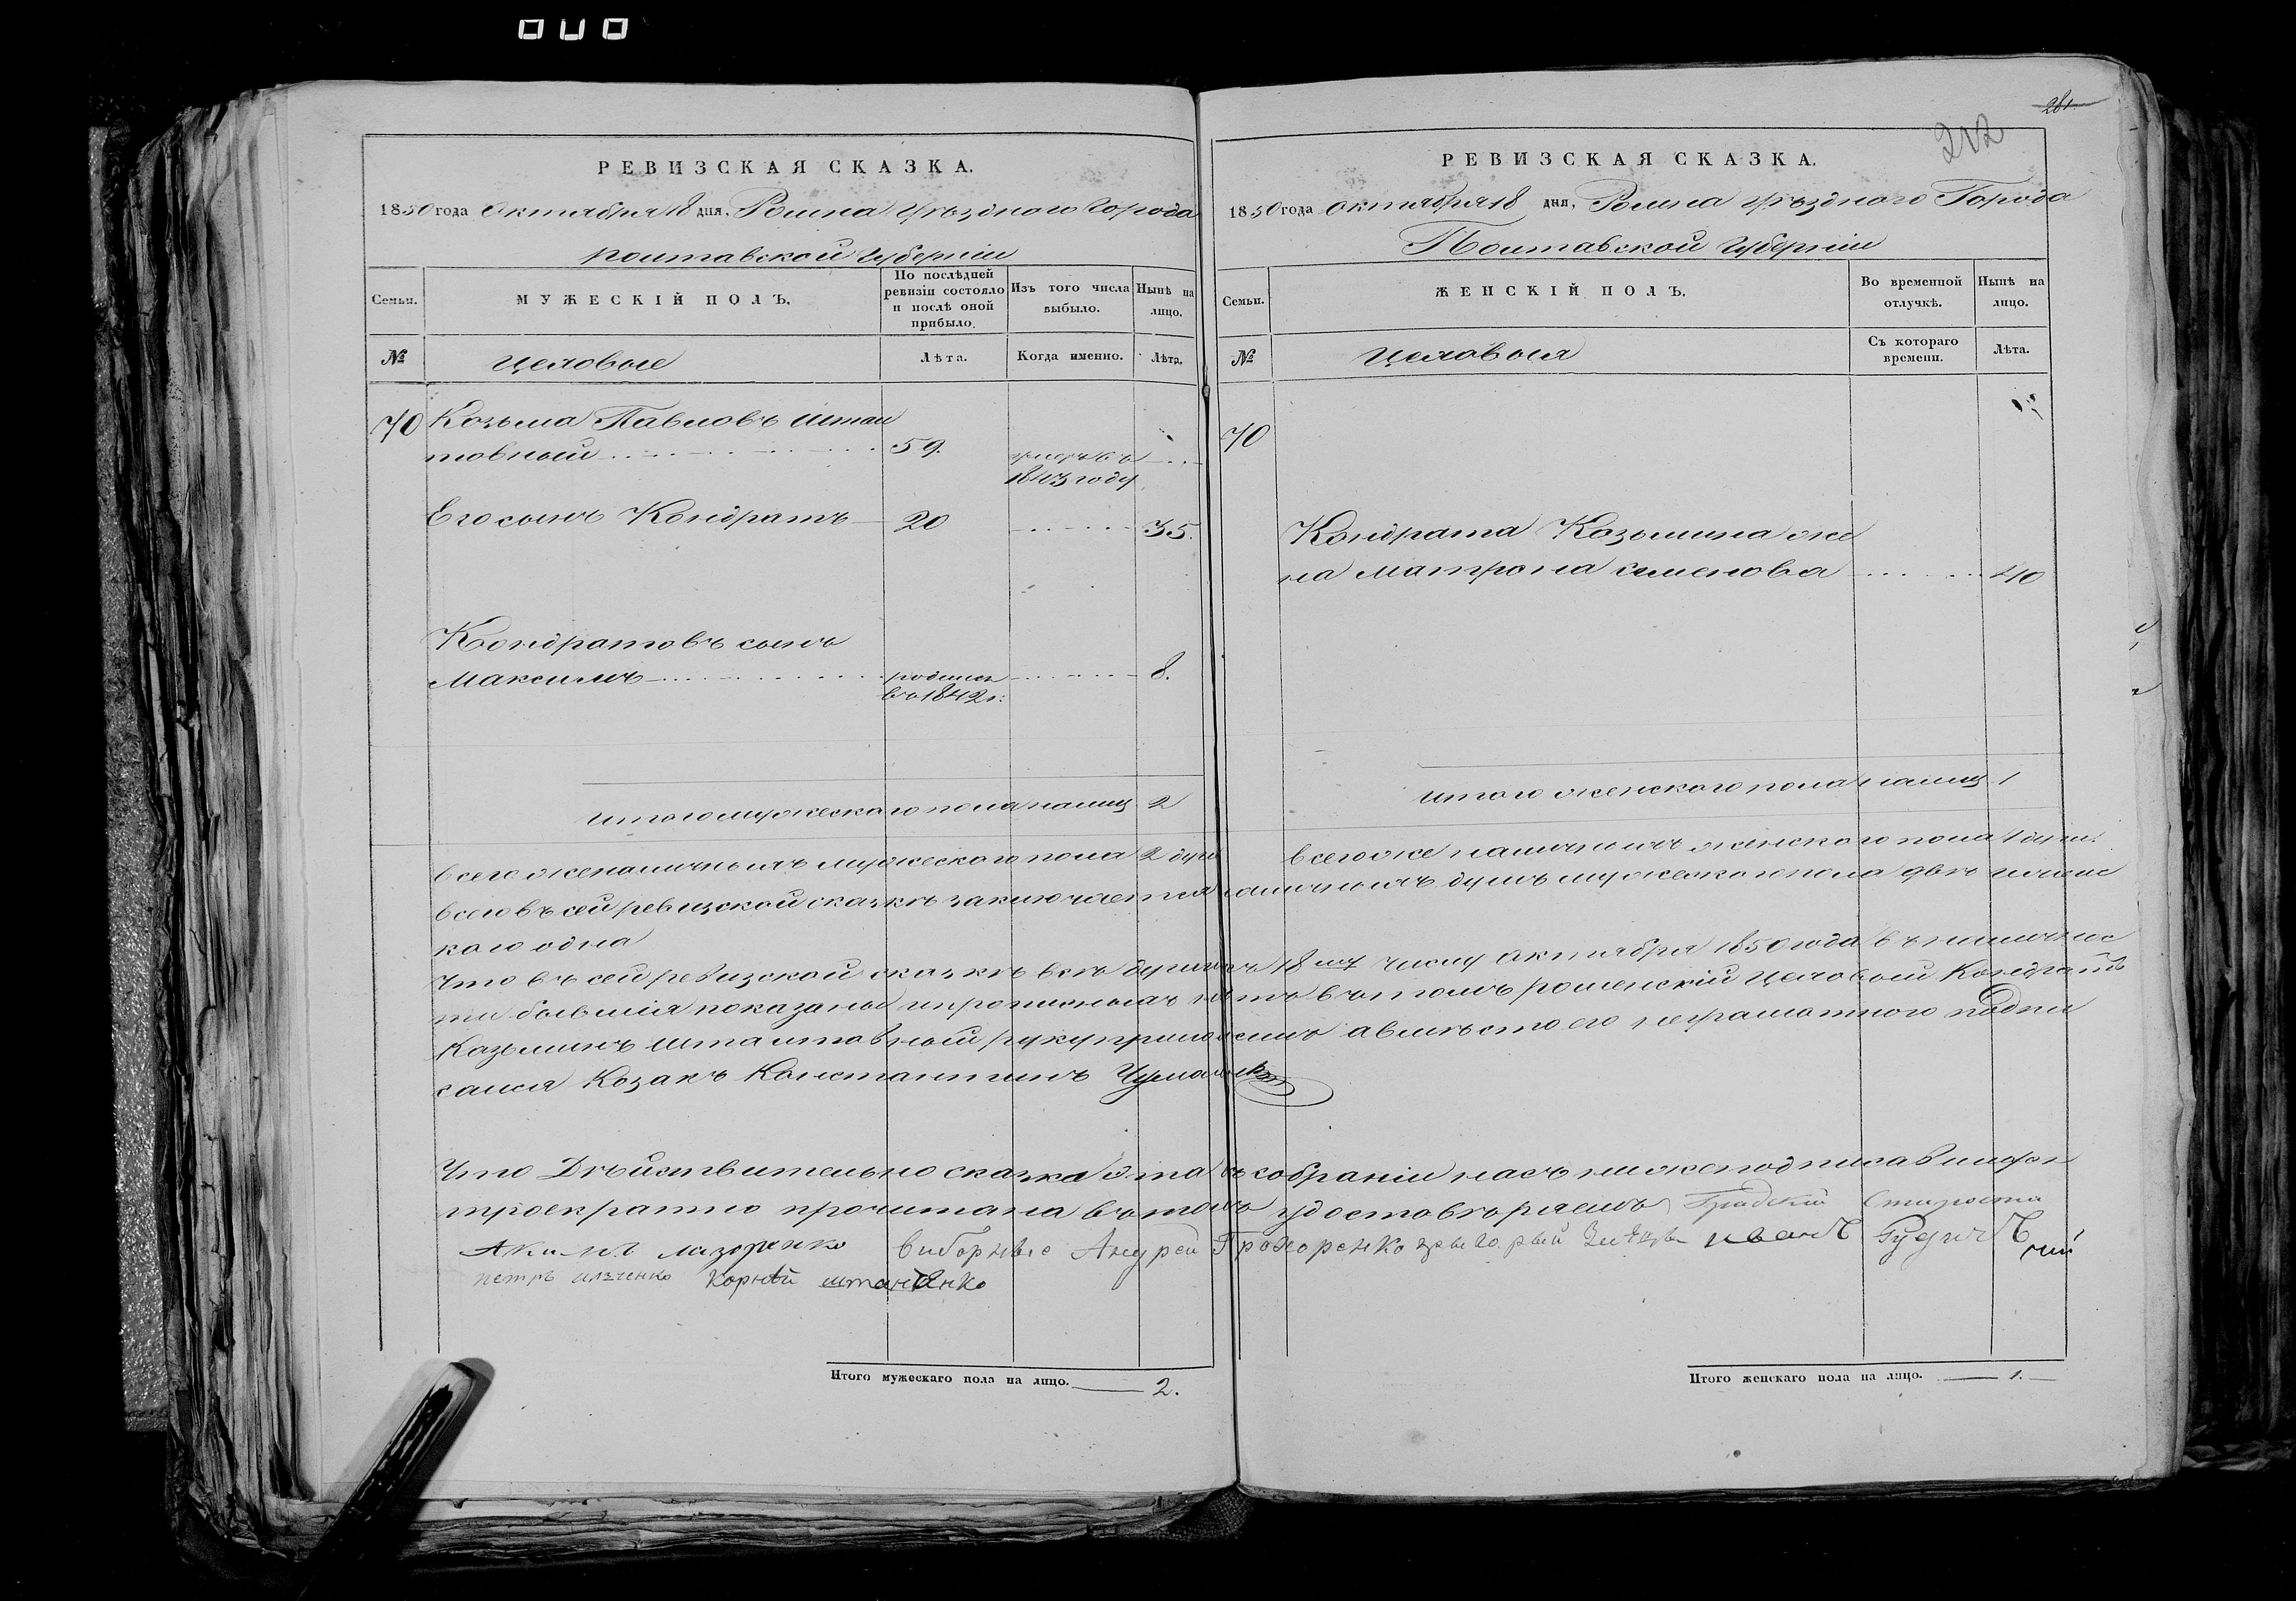 281
212
РЕВИЗСКАЯ СКАЗКА.
1850 года Октября 18 дня, Ромна Уѣзднаго Города
полтавской Губерніи
Семьи.
МУЖЕСКІЙ ПОЛЪ.
По послѣдней ревизіи состояло и послѣ оной прибыло.
Изъ того числа выбыло.
Нынѣ на лицо.
№
Цеховые
Лѣта.
Когда именно.
Лѣта.
70 Козьма Павловъ Штан
товный 59. умеръ въ
1843 году
Его сынъ Кондратъ 20 35.
Кондратовъ сынъ
Максимъ родился 8.
въ 1842 г:
Итого мужескаго пола налицо 2
РЕВИЗСКАЯ СКАЗКА.
1850 года октября 18 дня, Ромна уѣзднаго Города
Полтавской Губерніи
Семьи.
ЖЕНСКІЙ ПОЛЪ.
Во временной отлучкѣ.
Нынѣ на лицо.
№
Цеховыя
Съ котораго времени.
Лѣта.
70
Кондрата Козьмина же
на Матрона Семенова 40
Итого женского пола налицо 1
Всего же наличныхъ мужеского пола 2 души Всего же наличныхъ женского пола 1 душа.
Всего въ сей ревизской сказкѣ заключается наличныхъ душъ мужеского пола двѣ и женс
кого одна
Что въ сей ревизской сказкѣ всѣ души къ 18му числу Октября 1850 года въ наличнос
ти бывшія показаны и прописныхъ нѣтъ въ томъ роменскій цеховый Кондратъ
Казьминъ Штантовный руку приложилъ а вмѣсто его неграмотного подпи
сался Козакъ Константинъ
Что Дѣйствительно сказка эта въ собраніи насъ нижеподписавшихся
троекратно прочитана въ томъ удостовѣряемъ Градскій Староста
Акимъ Лазоренко виборные Андрей Прохоренко Иванъ
петръ Корнѣй
Итого мужескаго пола на лицо. 2.
Итого женскаго пола на лицо. 1.